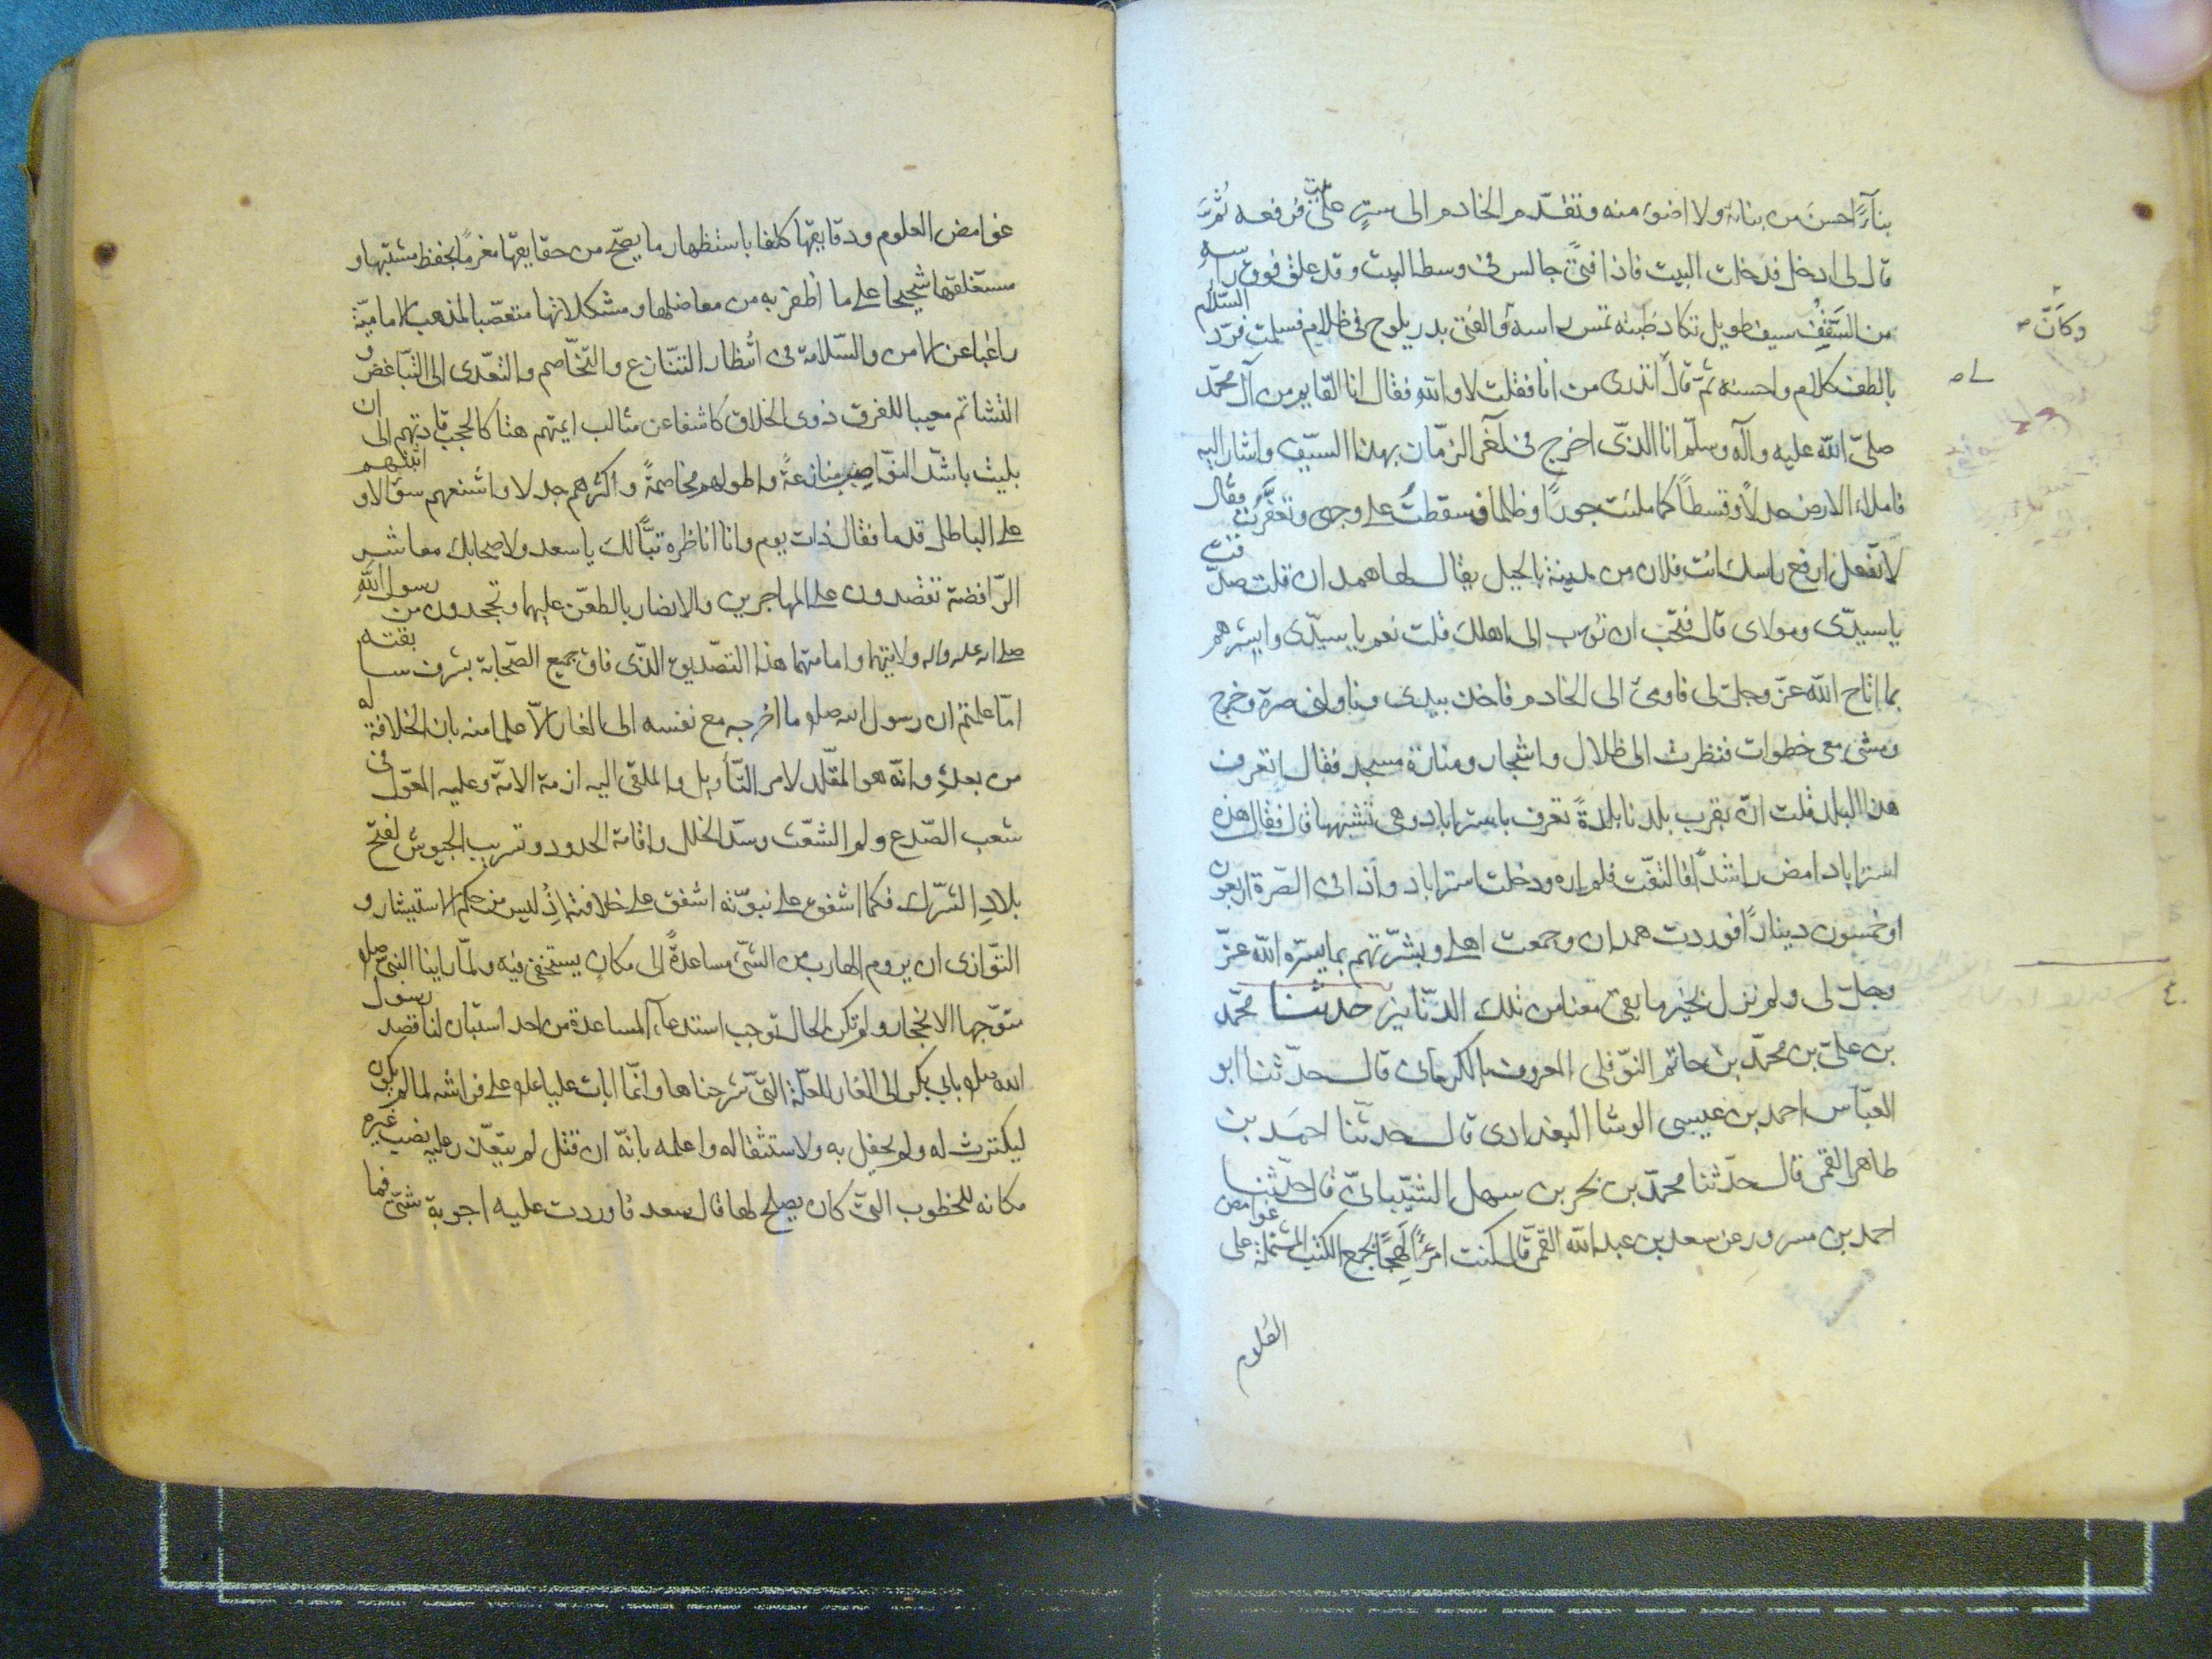 بناءً احسن من بنائه ولا اضوء منه وتقدّم الخادم الى ستر على بيت فرفعه ثمّ
قال لى ادخل فدخلت البيت فاذا فتىً جالس فى وسط البيت وقد علق فوق راسه
من السّقف سيف طويل تكاد ظُبته تمس راسه والفتى بدر يلوح فى ظلام فسلمت فردّ السّلام
بالطف كلام واحسنه ثمّ قال أتدرى من انا فقلت لا والله فقال انا القايم من آل محمّد
صلّى الله عليه وآله وسلّم انا الذّى اخرج فى آخر الزّمان بهذا السّيف واشار اليه
فاملاء الارض عدلاً وقسطاً كما ملئت جوراً وظلماً فسقطتُ على وجهى وتعفّرت فقال
لا تفعل ارفع راسك انت فلان من مدينة بالجبل يقال لها همدان قلت صدقت
يا سيدّى ومولاى قال فتحبّ ان تؤب الى اهلك قلت نعم يا سيدّى وابشرهم
بما اتاح الله عزّ وجلّ لى فاومئ الى الخادم فاخذ بيدى وناولنى صرة وخرج
ومشى معى خطوات فنظرت الى ظلال واشجار ومنارة مسجد فقال اتعرف
هذا البلد قلت انّ بقرب بلدنا بلدةً تعرف باستراباد وهى تشبهها قال فقال هذه
استراباد امض راشداً فالتفّت فلم اره ودخلت استراباد واذا فى الصّرة اربعون
او خمسون ديناراً فوردت همدان وجمعت اهلى وبشّرتهم بما يسّره الله عزّ
وجلّ لى ولم نزل بخير ما بقى معنا من تلك الدّنانير حدثنا محمّد
بن علىّ بن محمّد بن حاتم النوّفلى المعروف بالكرمانى قال حدّثنا ابو
العبّاس احمد بن عيسى الوشا البغدادى قال حدّثنا احمد بن
طاهر القمى قال حدّثنا محمّد بن بحر بن سهل الشيّبانىّ قال حدّثنا
احمد بن مسرور عن سعد بن عبد الله القمى قال كنت امرأً لَهِجًا بجمع الكتب المشتملة على غوامض
العلوم
وكانّ
غوامض العلوم ودقايقها كلفا باستظهار ما يصحّ من حقايقها مغرماً بحفظ مشتبهها و
مستغلقها شحيحا على ما اظفر به من معاضلها ومشكلاتها متعصّبا لمذهب الاماميّة
راغبا عن الامن والسّلامة فى انتظار التنّازع والتخّاصم والتعّدى الى التبّاغض و
التشاتم معيبا للفرق ذوى الخلاف كاشفا عن مثالب ائمتهم هتاكا لحجب قادتهم الى ان
بليت باشّد النوّاصب منازعةً واطولهم مخاصمةً واكثرهم جدلا واشنعهم سؤالا و اثبتهم
على الباطل قدما فقال ذات يوم وانا اناظره تبّاً لك يا سعد ولاصحابك معاشر
الرّافضة تقصدون على المهاجرين والانصار بالطعّن عليهما وتجحدون من رسول الله
صلى الله عليه واله ولايتهما وامامتهما هذا التصّديق الذّى فاق جميع الصّحابة بشرف سابقته
امّا علمتم ان رسول الله صلم ما اخرجه مع نفسه الى الغار الاّ علما منه بان الخلافة له
من بعده وانّه هو المقلّد لامر التّأويل والملقى اليه ازمة الامّة وعليه المعّول فى
شعب الصّدع ولم الشعّث وسدّ الخلل واقامة الحدود وتسريب الجيوش لفتح
بلاد الشرّك فكما اشفق على نبوّته اشفق على خلافته اذ ليس من حكم الاستيتار و
التوّازى ان يروم الهارب من الشئ مساعدةً الى مكان يستخفى فيه ولمّا راينا النبىّ صلم
متوّجها الانجحار ولم تكن الحال توجب استدعاء المساعدة من احد استبان لنا قصد رسول
الله صلم بابى بكر الى الغار للعلّة التىّ شرحناها وانمّا ابات عليا على فراشه لما لم يكن
ليكترث له ولم يحفل به ولاستثقاله واعلمه بانّه ان قتل لم يتعّذر عليه نصب غيره
مكانه للخطوب التىّ كان يصلح لها قال سعد فاوردت عليه اجوبة شتىّ فما